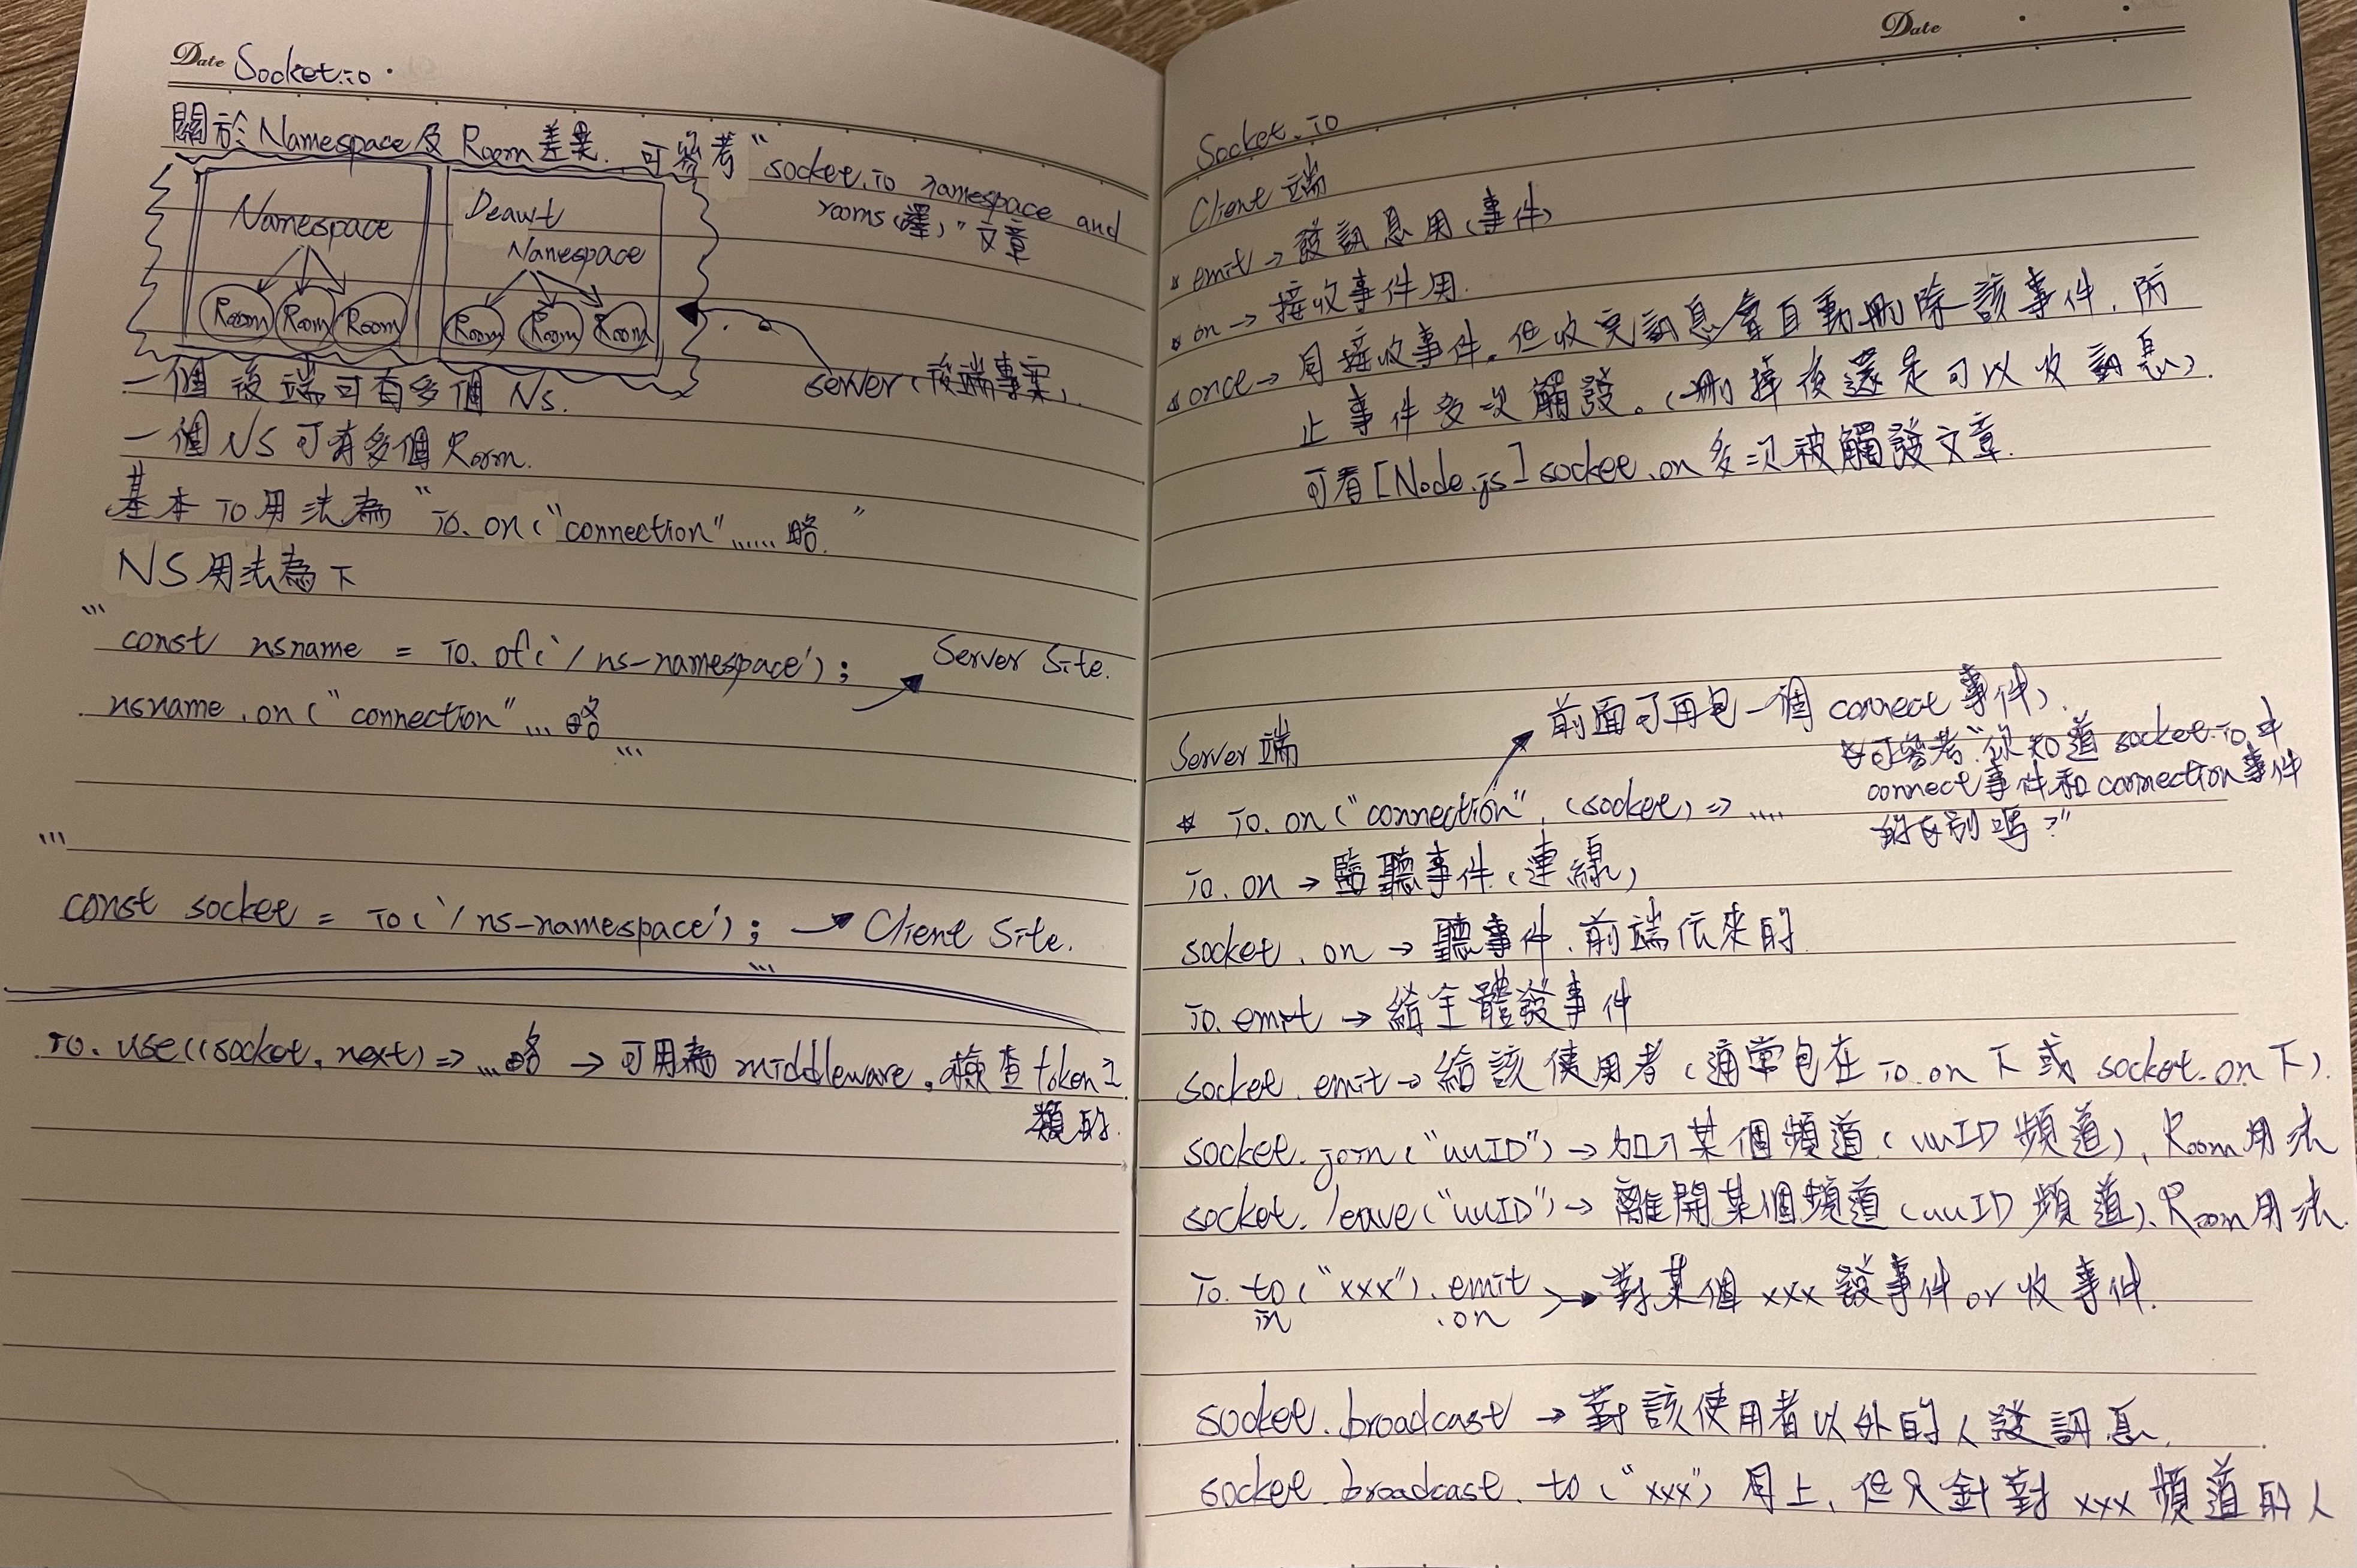 Date Socket.io
關於Namespace及 Room差異. 可參考 "socket.io namespace and
rooms(譯)" 文章
Namespace
Room Room Room
Deawt
Namespace
Room Room Room
server(後端專案).
一個後端可有多個 Ns.
一個NS可有多個Room.
基本io用法為 "io.on("connection"...... 略 "
NS用法為下
```
const nsname = io.of('/ns-namespace');
Server Site.
nsname.on("connection"... 略
```
```
const socket = io('/ns-namespace'); → Client Site.
```
io.use((socket, next) => ...略 → 可用為 middleware,檢查token之
類的.
Date
Socket.io
Client 端
* emit → 發訊息用(事件)
* on → 接收事件用.
* once → 同接收事件,但收完訊息會自動刪除該事件,防
止事件多次觸發。(刪掉後還是可以收訊息).
可看[Node.js]socket.on多次被觸發文章.
前面可再包一個 connect 事件).
☆可參考"你知道socket.io中
connect事件和connection事件
的区别嗎?"
Server端
* io.on("connection", (socket) => ....
io.on → 監聽事件(連線)
socket.on → 聽事件.前端伝來的
io.emit → 給全體發事件
socket.emit → 給該使用者(通常包在io.on下或socket.on下).
socket.join("uuID") → 加入某個頻道(uuID頻道), Room用法
socket.leave("uuID") → 離開某個頻道(uuID頻道), Room用法.
io.to("xxx").emit → 對某個xxx發事件or收事件.
in .on
socket.broadcast → 對該使用者以外的人發訊息.
socket.broadcast.to("xxx") 同上,但只針對xxx頻道的人